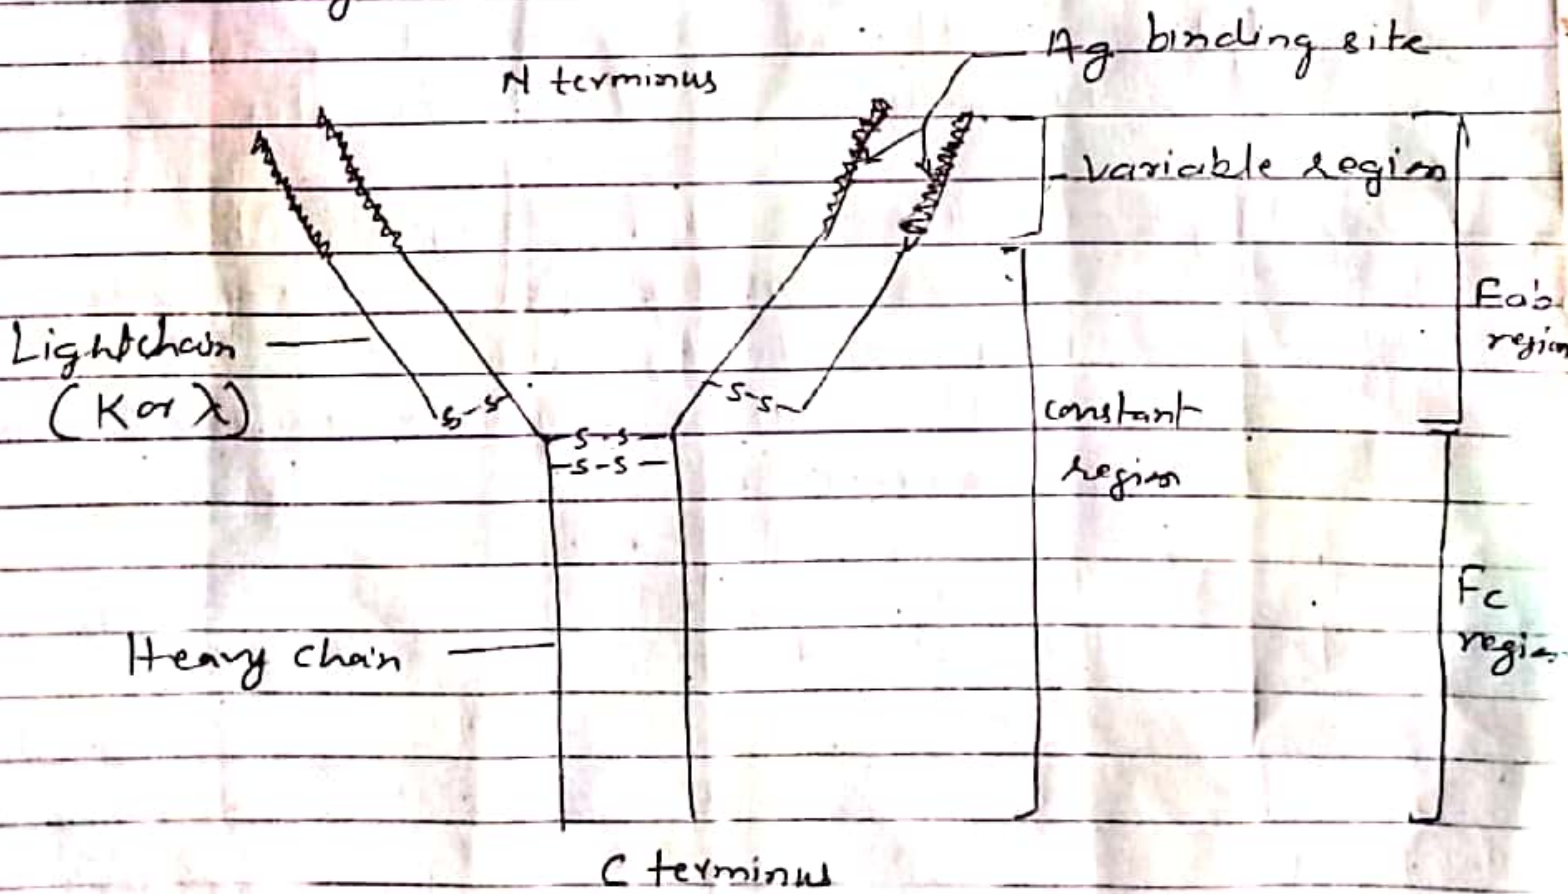 Ag binding site
N terminus
variable region
Fab
region
Light chain
(K or λ)
S-S
S-S
S-S
S-S
constant
region
Fc
region
Heavy chain
C terminus